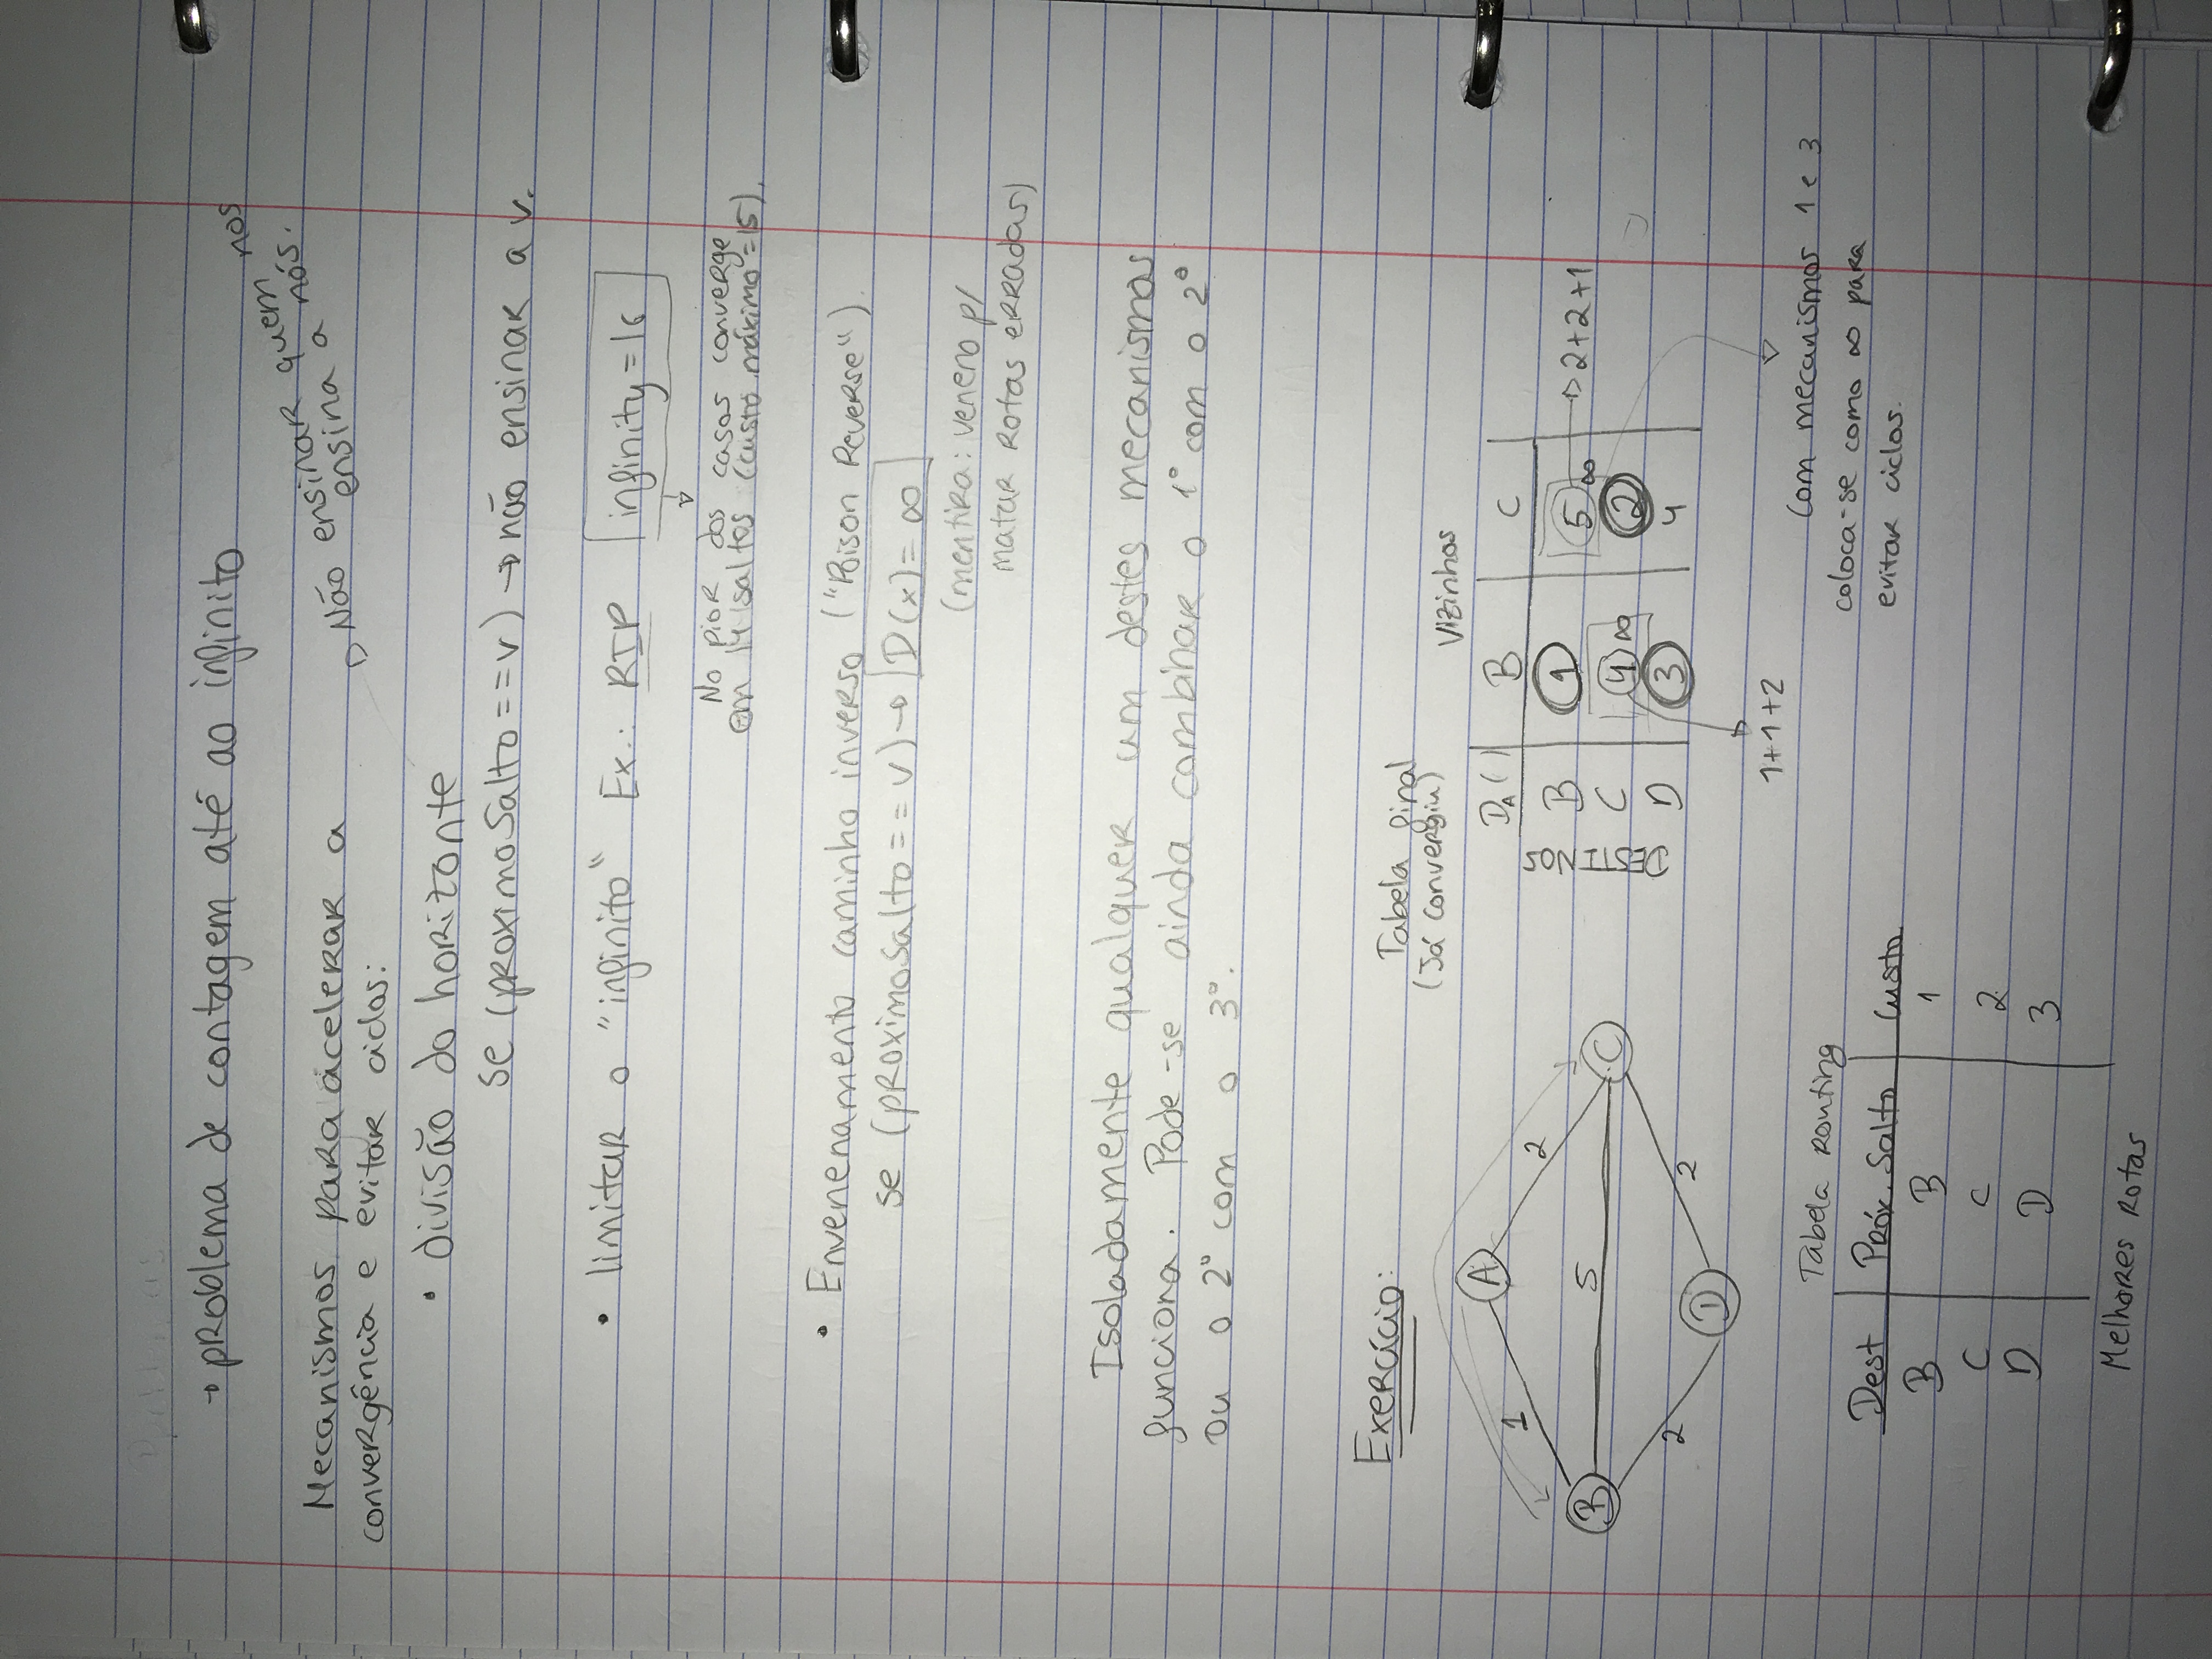 → problema de contagem até ao infinito
▷ Não ensinar quem nos
ensina a nós.
Mecanismos para acelerar a
convergência e evitar ciclos:
• divisão do horizonte
se (proximoSalto==v) → não ensinar a v.
• limitar o "infinito" Ex.: RIP infinity=16
No pior dos casos converge
em 14 saltos (custo máximo=15).
• Envenenamento caminho inverso ("Poison Reverse")
se (proximoSalto==v) → D(x)=∞
(mentira: veneno p/
matar rotas erradas)
Isoladamente qualquer um destes mecanismos
funciona. Pode-se ainda combinar o 1º com o 2º
ou o 2º com o 3º.
Exercício:
A
1 2
B 5 C
2 2
D
Tabela final
(Já convergiu)
Vizinhos
DESTINOS
D_A( ) B C
B 1 5 ∞ → 2+2+1
C 4 ∞ 2
D 3 4
1+1+2
Com mecanismos 1 e 3
coloca-se como ∞ para
evitar ciclos.
Tabela routing
Dest Próx. Salto Custo
B B 1
C C 2
D D 3
Melhores rotas